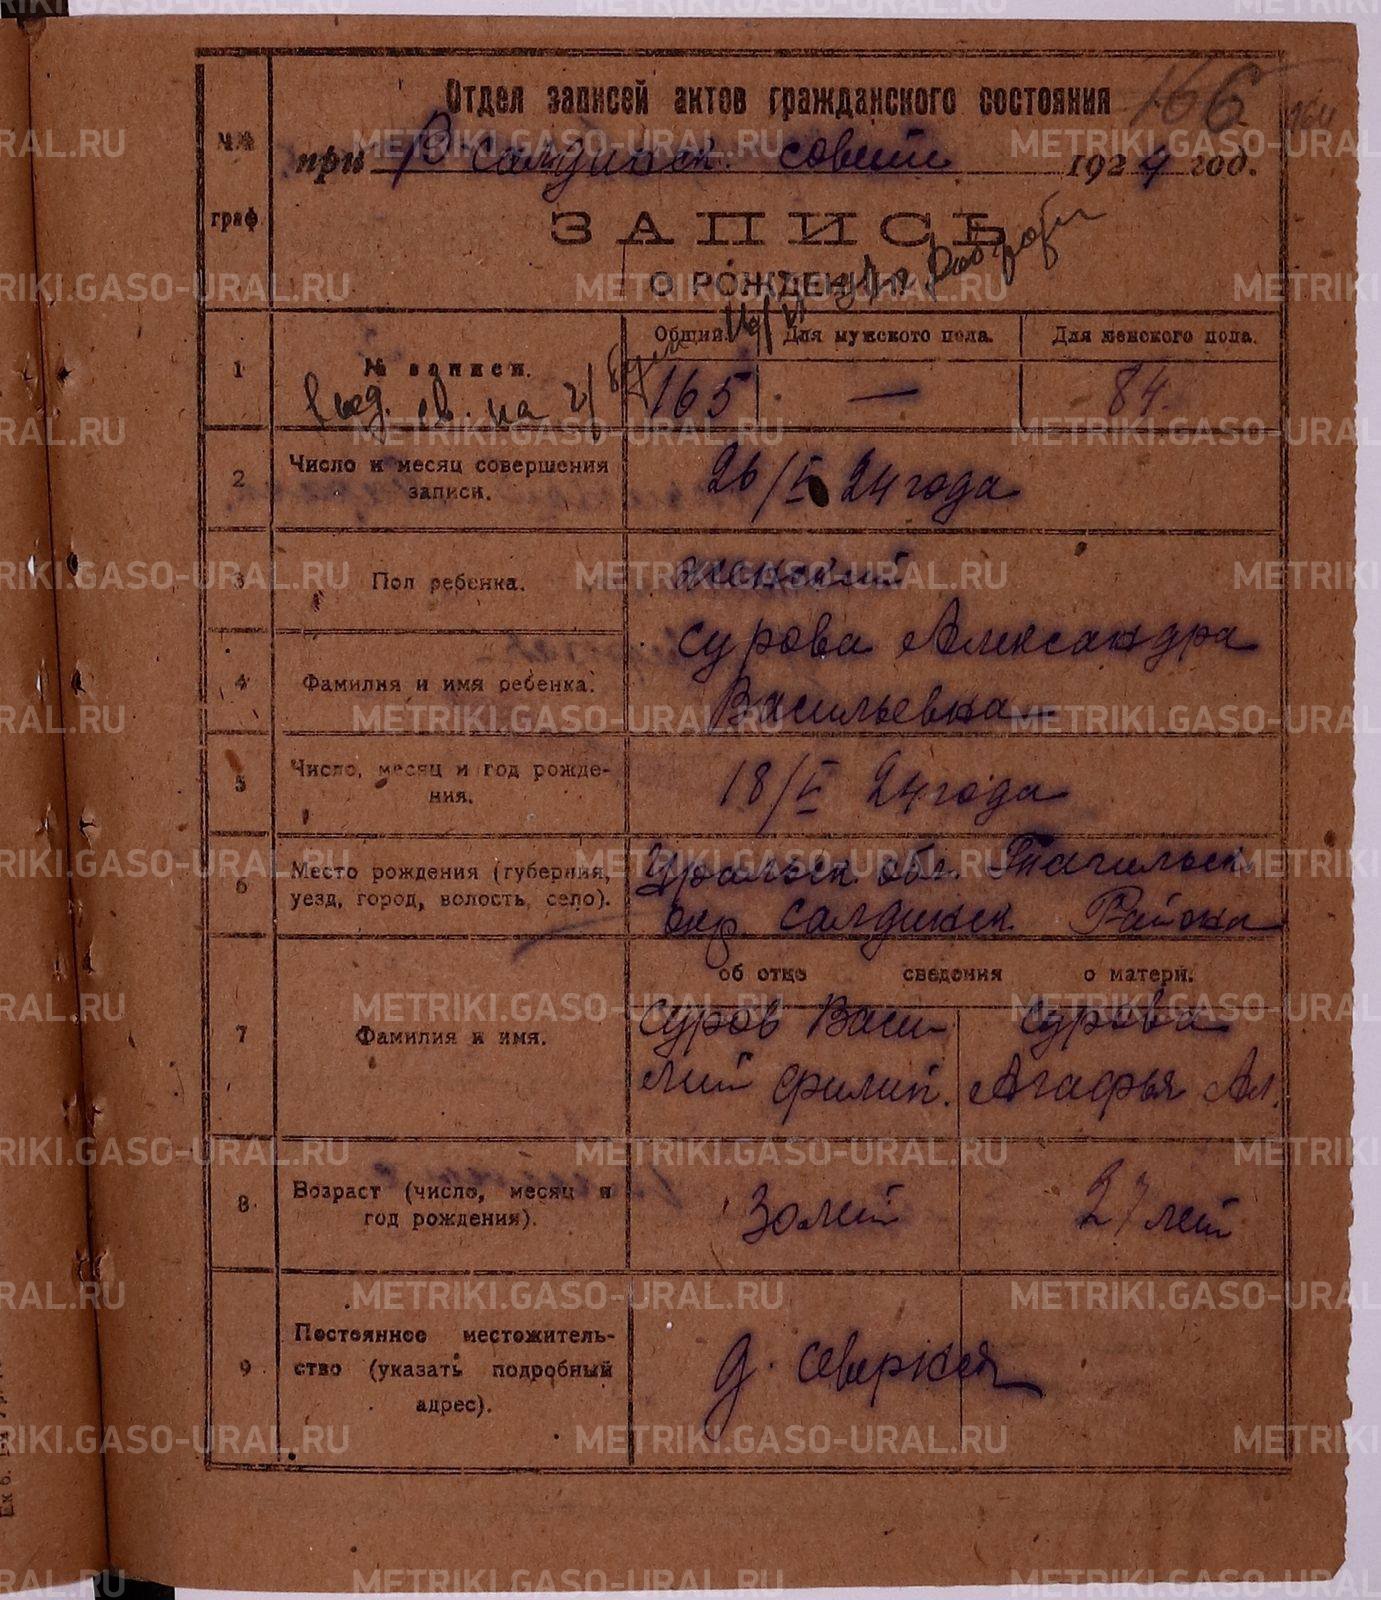 Отдел записей актов гражданского состояния
166
164
№№ граф
при В-салдинск. совети 1924 год.
ЗАПИСЬ
О РОЖДЕНИИ
1
№ записи.
Общий.
Для мужского пола.
Для женского пола.
165
—
84.
св. на
2
Число и месяц совершения
записи.
26/V 24 года
3
Пол ребенка.
женский
4
Фамилия и имя ребенка.
Сурова Александра
Васильевна
5
Число, месяц и год рожде-
ния.
18/V 24 года
6
Место рождения (губерния,
уезд, город, волость, село).
Уральск. обл. Тагильск.
окр. Салдинск Района
об отце сведения о матери.
7
Фамилия и имя.
Суров Васи-
лий Филип.
Сурова
Агафья Ал.
8
Возраст (число, месяц и
год рождения).
30 лет
27 лет
9
Постоянное местожитель-
ство (указать подробный
адрес).
д. Северная
METRIKI.GASO-URAL.RU